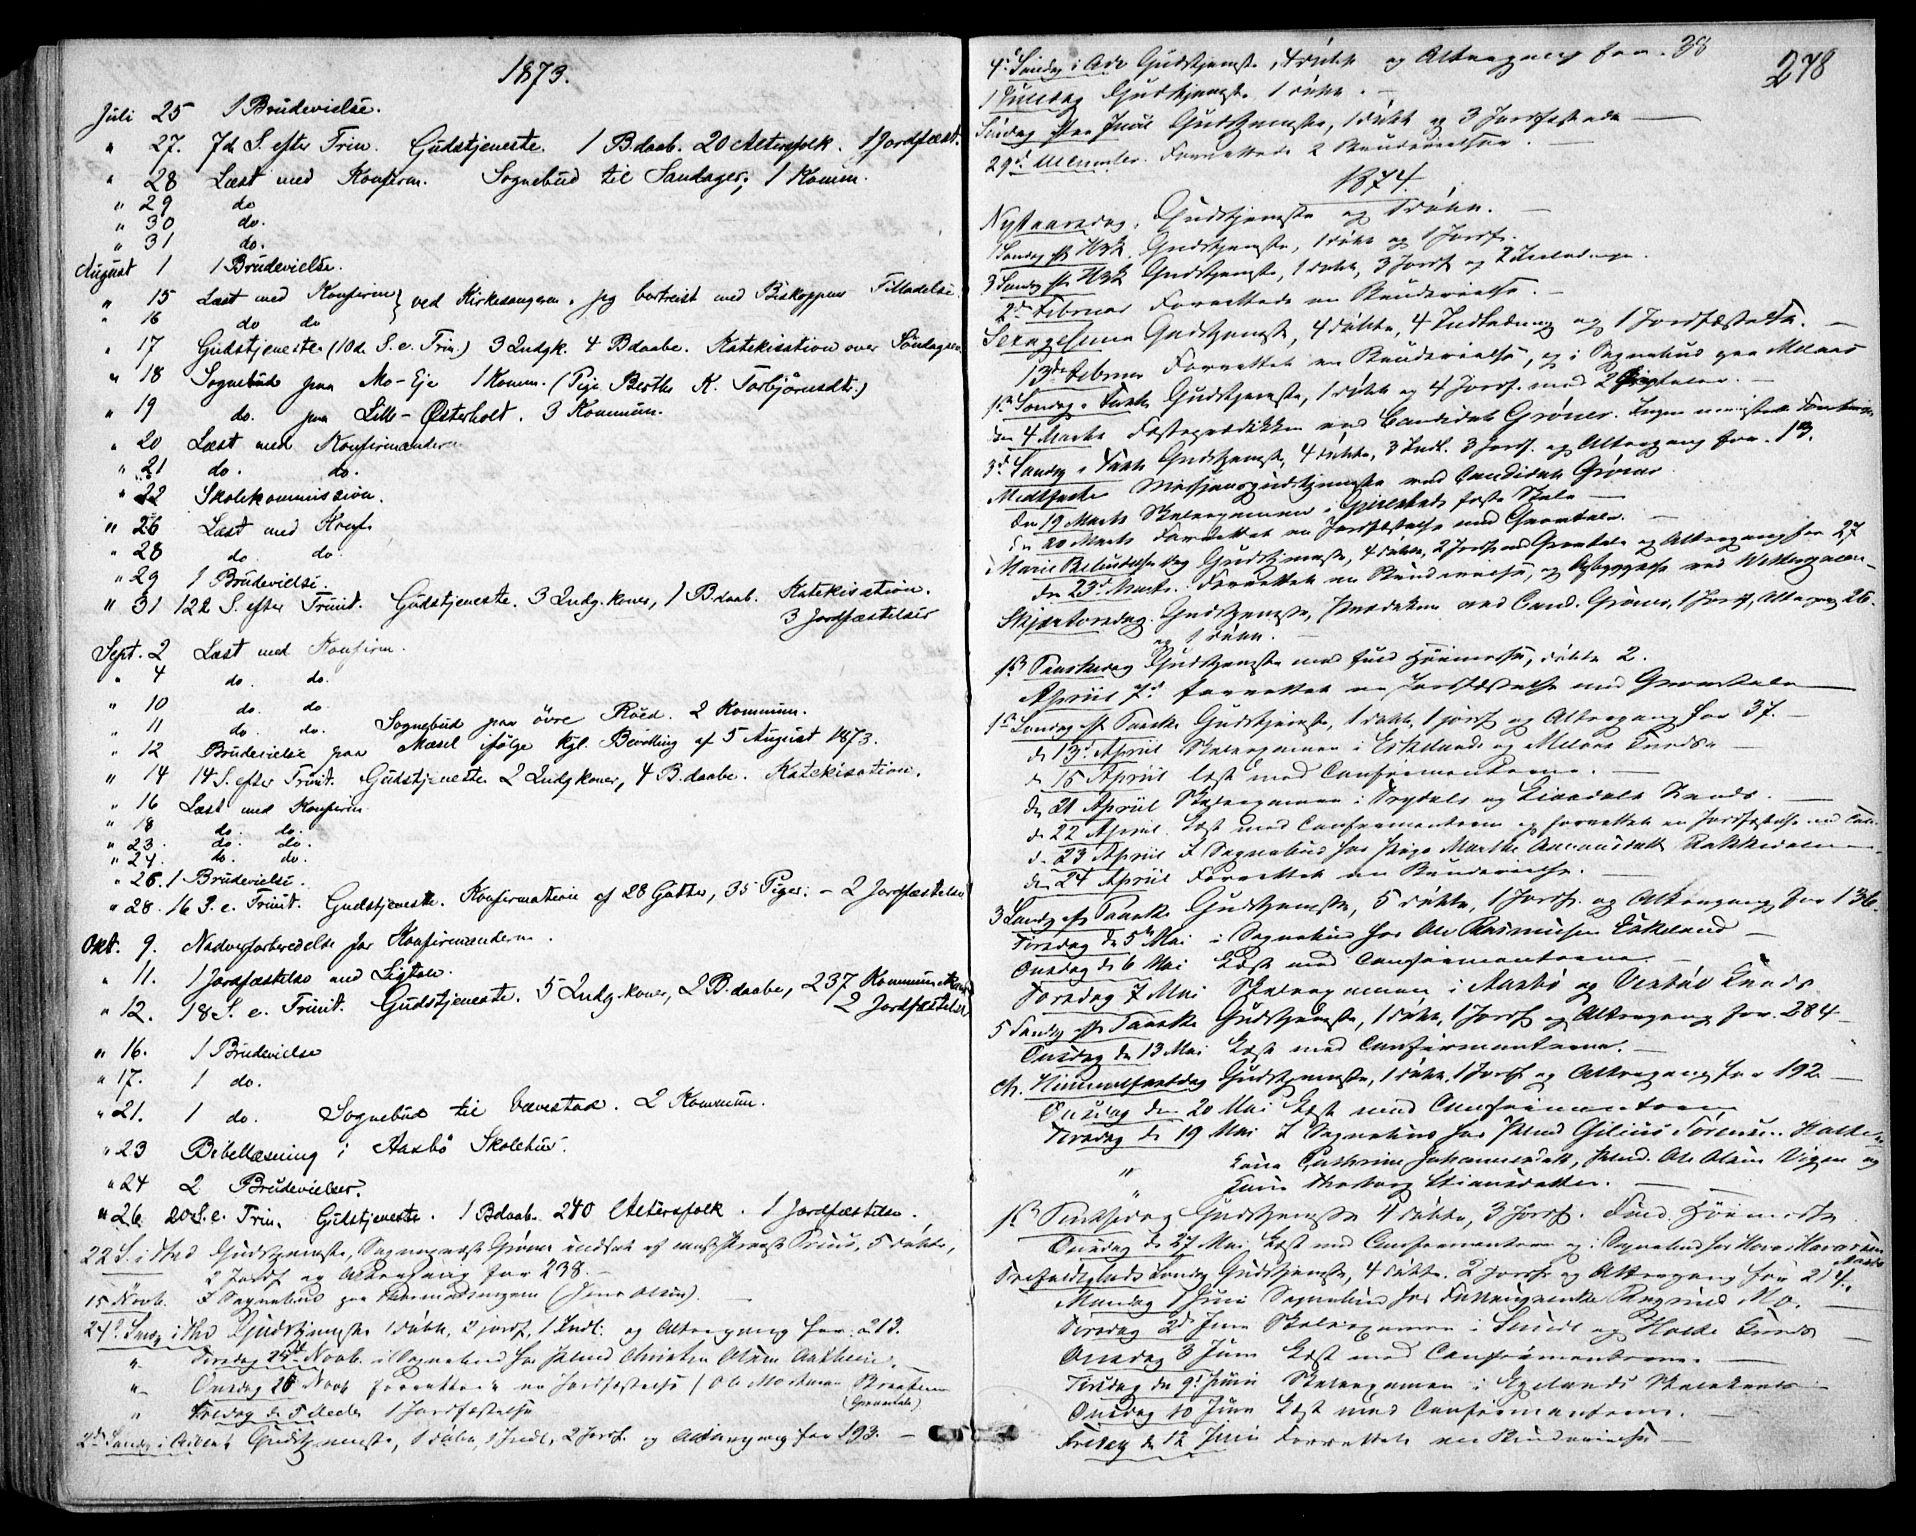 1873.
Juli 25 1 Brudevielse.
" 27. 7de S. efter Trin. Gudstjeneste. 1 B.daab. 20 Altersfolk. 1 Jordfæst.
" 28 Læst med Konfirm. Sognebud til Sandager, 1 Komm.
" 29 do
" 30 do.
" 31 do.
August 1 1 Brudevielse.
" 15 Læst med Konfirm } ved Kirkesangeren. Jeg bortreist med Biskoppens Tilladelse.
" 16 do do
" 17 Gudstjeneste (10d. S. e. Trin.) 3 Indgk. 4 Bdaabe. Katekisation over Søndagen
" 18 Sognebud paa Mo-Eje 1 Komm. (Pige Berthe K. Torbjørnsdt.)
" 19 do. paa Lille-Østerholt. 3 Kommun.
" 20 Læst med Konfirmanderne
" 21 do. do.
" 22 Skolekommission.
" 26 Læst med Konf.
" 28 do. do.
" 29 1 Brudevielse.
" 31 12te S. efter Trinit. Gudstjeneste. 3 Indg.koner, 1 B.daab. Katekisation.
3 Jordfæstelser
Sept. 2 Læst med Konfirm.
" 4 do. do.
" 10 do. do.
" 11 do. do. Sognebud paa øvre Røed. 2 Kommun.
" 12 Brudevielse paa Mæsel ifølge kgl. Bevilling af 5 August 1873.
" 14 14 S. efter Trinit. Gudstjeneste 2 Indgkoner, 4 B.daabe. Katekisation.
" 16 Læst med Konfirm
" 18 do. do.
" 23. do. do.
" 24. do. do.
" 26. 1 Brudevielse.
" 28. 16 S. e. Trinit. Gudstjeneste. Konfirmation af 28 Gutter, 35 Piger. – 2 Jordfæstelser
Okt. 9. Nadverforberedelse for Konfirmanderne.
" 11. 1 Jordfæstelse med Ligtale.
" 12. 18 S. e. Trinit. Gudstjeneste. 5 Indg.koner, 2 B.daabe, 237 Kommunikant
2 Jordfæstelser
" 16. 1 Brudevielse
" 17. 1 do.
" 21. 1 do. Sognebud til Vævestad. 2 Kommun.
" 23 Bibellæsning i Aasbø Skolehus.
" 24 2 Brudevielser.
" 26 20 S. e. Trin. Gudstjeneste. 1 Bdaab. 240 Altersfolk. 1 Jordfæstelse.
22 S. i Trd Gudstjeneste, Sognepræst Grøner indsat af Provst, 5 døbte,
2 Jordf og Altergang for 238.
15 Novb. I Sognebud paa (Jens Olsen). –
24de Sønd i Trd Gudstjeneste 1 døbt, 2 jordf, 1 Indl. og Altergang for 213.
" Tirsdag 25de Novb. i Sognebud for Christen Olsen. –
" Onsdag 26 Novb forrettede en Jordfæstelse (Ole Mortensen
" Fredag de 5 Decbr 1 Jordfæstelse (Gravtale)
2de Sønd i Advent Gudstjeneste, 1 døbt, 1 Indl, 2 Jordf. og Altergang for 193. –
278
4de Søndag i Adv Gudstjeneste, 4 døbte og Altergang for 38
1 Juledag Gudstjeneste 1 døbt. –
Søndag efter Juul Gudstjeneste, 1 døbt og 3 Jordfæstede
29de December. Forrettede 2 Brudevielser. –
1874.
Nytaarsdag. Gudstjeneste og 1 døbt. –
1 Søndag eft H3K. Gudstjeneste, 1 døbt og 1 Jordf.
3 Søndag eft H3K Gudstjeneste, 1 døbt, 3 Jordf og 2 Indledninger.
2de Februar Forrettede en Brudevielse. –
Sexagesima Gudstjeneste, 4 døbte, 4 Indledning og 1 Jordfæstelse. –
13de Februar Forrettet en Brudevielse, og i Sognebud paa Melaas
1ste Søndag i Faste Gudstjeneste, 1 døbt og 4 Jordf. med 2 Ligtaler. –
den 4 Marts Fasteprædiken ved Candidat Grøner. Ingen
3de Søndag i Faste Gudstjeneste, 4 døbte, 3 Indl. 3 Jordf. og Altergang for 13.
Midtfaste Missionsgudstjeneste ved Candidat Grøner
den 19 Marts Skoleexamen i Gjerstads faste Skole –
den 20 Marts Forrettet en Jordfæstelse med Gravtale. –
Marie Bebudelsesdag Gudstjeneste, 4 døbte, 2 Jordf med Gravtale og Altergang for 27
den 25de Marts. Forrettet en Brudevielse, og
Skjærtorsdag. Gudstjeneste, Prædiken ved Cand. Grøner, 1 Jordf, Altergang 26.
og 1 døbt. –
1ste Paaskedag Gudstjeneste med fuld Høimesse, døbte 2.
Apriil 7de forrettet en Jordfæstelse med Gravtale
1ste Søndag eft Paaske Gudstjeneste, 1 døbt, 1 jordf og Altergang for 37. –
de 13de Apriil Skoleexamen i Eskelands og Melaas Kreds –
de 15 Apriil læst med Confirmanterne. –
de 21 Apriil Skoleexamen i Trydals og Kreds. –
de 22 Apriil. Læst med Confirmanterne og forrettet en Jordfæstelse med Tale
de 23 Apriil I Sognebud for Pige Marthe –
den 24 Apriil Forrettet en Brudevielse. –
3 Søndag eft Paaske Gudstjeneste, 5 døbte, 1 Jordf. og Altergang for 136.
Tirsdag de 5te Mai i Sognebud for Ole Rasmussen Eskeland –
Onsdag de 6 Mai Læst med Confirmanterne. –
Torsdag 7 Mai Skoleexamen i Aasbø og Vestøl Kreds
5 Søndag eft Paaske Gudstjeneste, 1 døbt, 1 Jordf og Altergang for 284 –
Onsdag den 13 Mai Læst med Confirmanterne. –
Chr. Himmelfartsdag Gudstjeneste, 1 døbt, 1 Jordf og Altergang for 192 –
Onsdag den 20 Mai Læst med Confirmanterne
Tirsdag de 19 Mai I Sognebud for Gilius Sørensen
" Kone Cathrine Johannesdatt, Ole Olsen Vigen og
" Kone
1ste Pintsedag Gudstjeneste 4 døbte, 3 Jordf. Fuld Høimesse
Onsdag de 27 Mai Læst med Confirmanterne og i Sognebud for
Trefoldigheds Søndag Gudstjeneste, 4 døbte. 2 Jordf og Altergang for 214.
Mandag 1 Juni Sognebud for Mo. –
Tirsdag 2de Juni Skoleexamen i Kreds –
Onsdag 3 Juni Læst med Confirmanterne. –
Tirsdag den 9de Juni Skoleexamen i Egelands
Onsdag 10 Juni Læst med Confirmanterne. –
Fredag de 12 Juni Forrettet en Brudevielse –